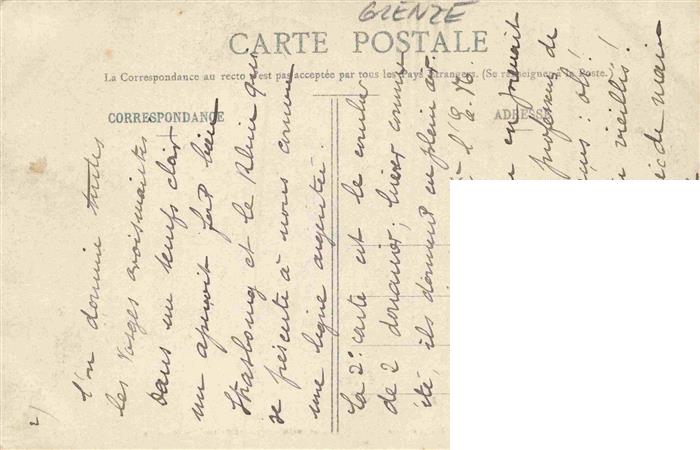 GRENZE
CARTE POSTALE
La Correspondance au recto n'est pas acceptée par tous les Pays étrangers. (Se renseigner à la Poste.)
CORRESPONDANCE
ADRESSE
2)
l'on domine toutes
les Vosges avoisinantes
Dans un temps clair
on aperçoit fort bien
Strasbourg et le Rhin qui
se présente à nous comme
une ligne argentée.
La 2e carte est le comble
de 2 douanier, hiver comme
été, ils dorment en plein air.
à l'
en prenait
professeur de
oh!
vieillis!
de main